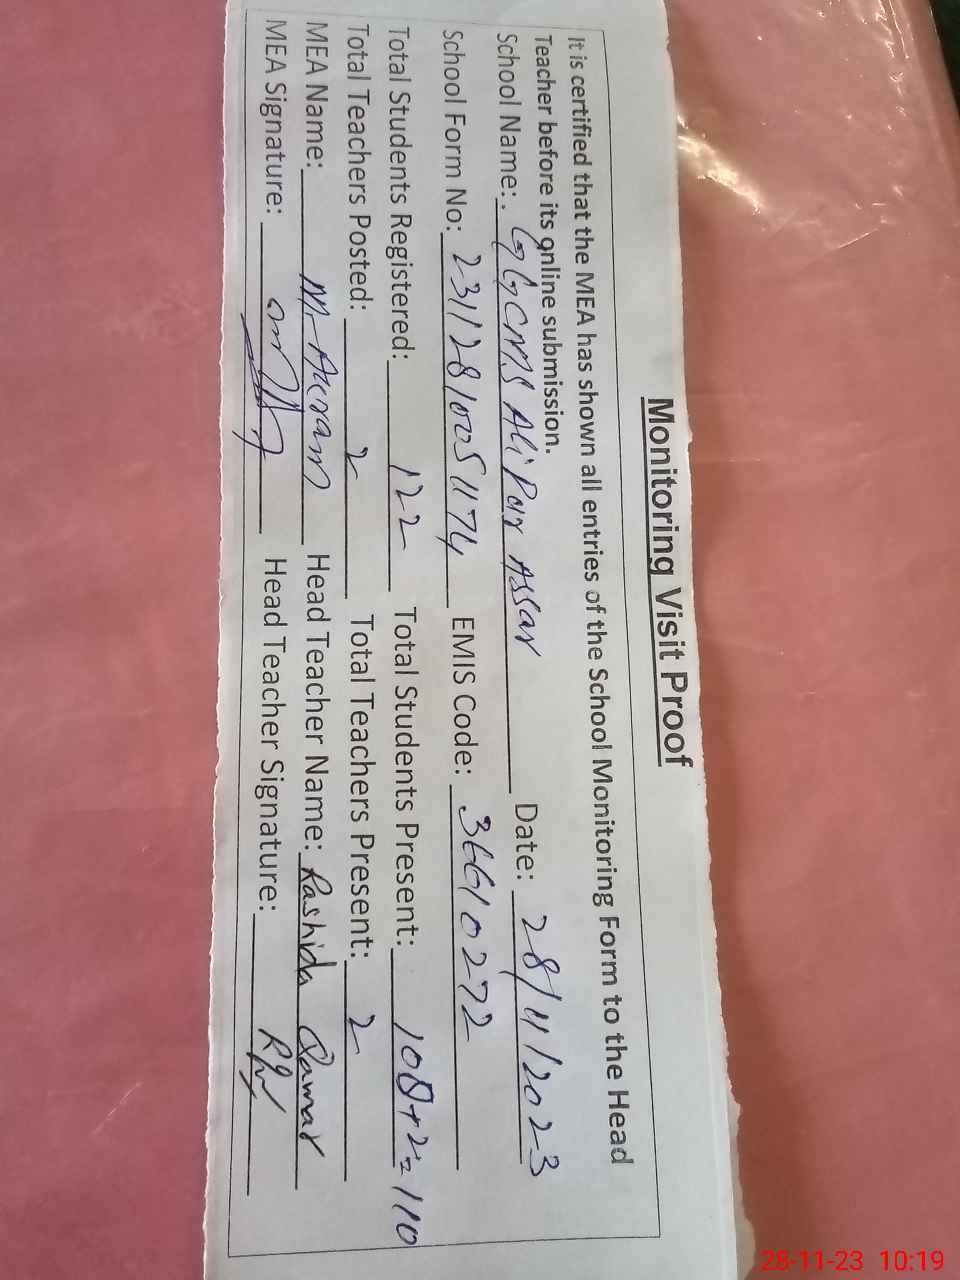 Monitoring Visit Proof
It is certified that the MEA has shown all entries of the School Monitoring Form to the Head
Teacher before its online submission.
School Name: . GGCMS Ali Pur Assar Date: 28/11/2023
School Form No: 23112810051174 EMIS Code: 36610272
Total Students Registered: 122 Total Students Present: 108+2=110
Total Teachers Posted: 2 Total Teachers Present: 2
MEA Name: M. Akram Head Teacher Name: Rashida Qamar
MEA Signature: Head Teacher Signature:
28-11-23 10:19